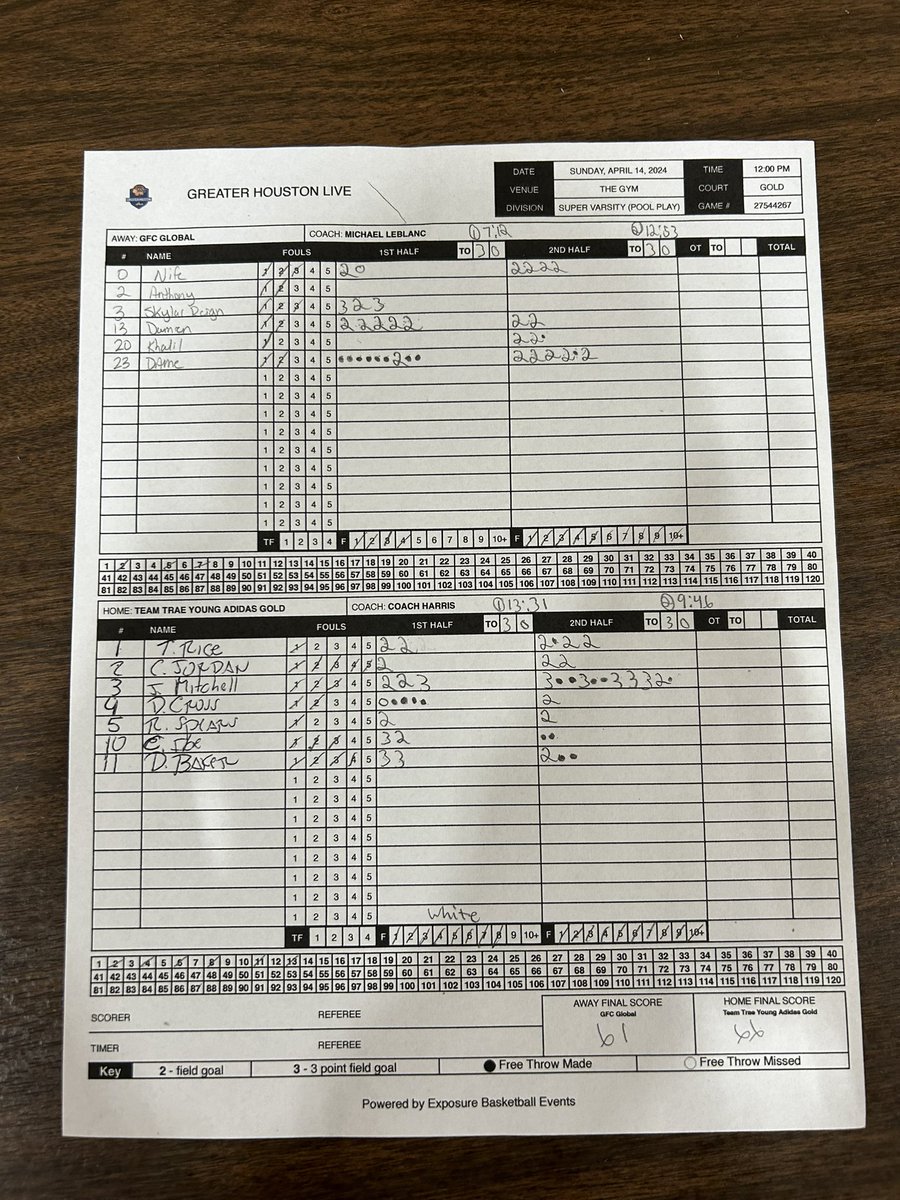 GREATER HOUSTON LIVE
DATE SUNDAY, APRIL 14, 2024 TIME 12:00 PM
VENUE THE GYM COURT GOLD
DIVISION SUPER VARSITY (POOL PLAY) GAME # 27544267
AWAY: GFC GLOBAL COACH: MICHAEL LEBLANC ① 7:12 ② 12:53
# NAME FOULS 1ST HALF TO 3 0 2ND HALF TO 3 0 OT TO TOTAL
0 Nife 1 2 3 4 5 2○ 2222
2 Anthony 1 2 3 4 5
3 Skylar 1 2 3 4 5 323
13 Damien 1 2 3 4 5 22222 22
20 Khalil 1 2 3 4 5 22•
23 DAme 1 2 3 4 5 ••••••2•• 2222•2
1 2 3 4 5
1 2 3 4 5
1 2 3 4 5
1 2 3 4 5
1 2 3 4 5
1 2 3 4 5
1 2 3 4 5
1 2 3 4 5
1 2 3 4 5
TF 1 2 3 4 F 1 2 3 4 5 6 7 8 9 10+ F 1 2 3 4 5 6 7 8 9 10+
1 2 3 4 5 6 7 8 9 10 11 12 13 14 15 16 17 18 19 20 21 22 23 24 25 26 27 28 29 30 31 32 33 34 35 36 37 38 39 40
41 42 43 44 45 46 47 48 49 50 51 52 53 54 55 56 57 58 59 60 61 62 63 64 65 66 67 68 69 70 71 72 73 74 75 76 77 78 79 80
81 82 83 84 85 86 87 88 89 90 91 92 93 94 95 96 97 98 99 100 101 102 103 104 105 106 107 108 109 110 111 112 113 114 115 116 117 118 119 120
HOME: TEAM TRAE YOUNG ADIDAS GOLD COACH: COACH HARRIS ① 13:31 ② 9:46
# NAME FOULS 1ST HALF TO 3 0 2ND HALF TO 3 0 OT TO TOTAL
1 T. RICE 1 2 3 4 5 22 2•22
2 C. JORDAN 1 2 3 4 5 2 22
3 J. Mitchell 1 2 3 4 5 223 3••3••3332•
4 D. CROSS 1 2 3 4 5 ○•••• 2
5 R. SPEARS 1 2 3 4 5 2 2
10 1 2 3 4 5 32 ••
11 D. BAKER 1 2 3 4 5 33 2••
1 2 3 4 5
1 2 3 4 5
1 2 3 4 5
1 2 3 4 5
1 2 3 4 5
1 2 3 4 5
1 2 3 4 5
1 2 3 4 5 White
TF 1 2 3 4 F 1 2 3 4 5 6 7 8 9 10+ F 1 2 3 4 5 6 7 8 9 10+
1 2 3 4 5 6 7 8 9 10 11 12 13 14 15 16 17 18 19 20 21 22 23 24 25 26 27 28 29 30 31 32 33 34 35 36 37 38 39 40
41 42 43 44 45 46 47 48 49 50 51 52 53 54 55 56 57 58 59 60 61 62 63 64 65 66 67 68 69 70 71 72 73 74 75 76 77 78 79 80
81 82 83 84 85 86 87 88 89 90 91 92 93 94 95 96 97 98 99 100 101 102 103 104 105 106 107 108 109 110 111 112 113 114 115 116 117 118 119 120
SCORER REFEREE AWAY FINAL SCORE HOME FINAL SCORE
GFC Global Team Trae Young Adidas Gold
TIMER REFEREE 61 66
Key 2 - field goal 3 - 3 point field goal ● Free Throw Made ○ Free Throw Missed
Powered by Exposure Basketball Events